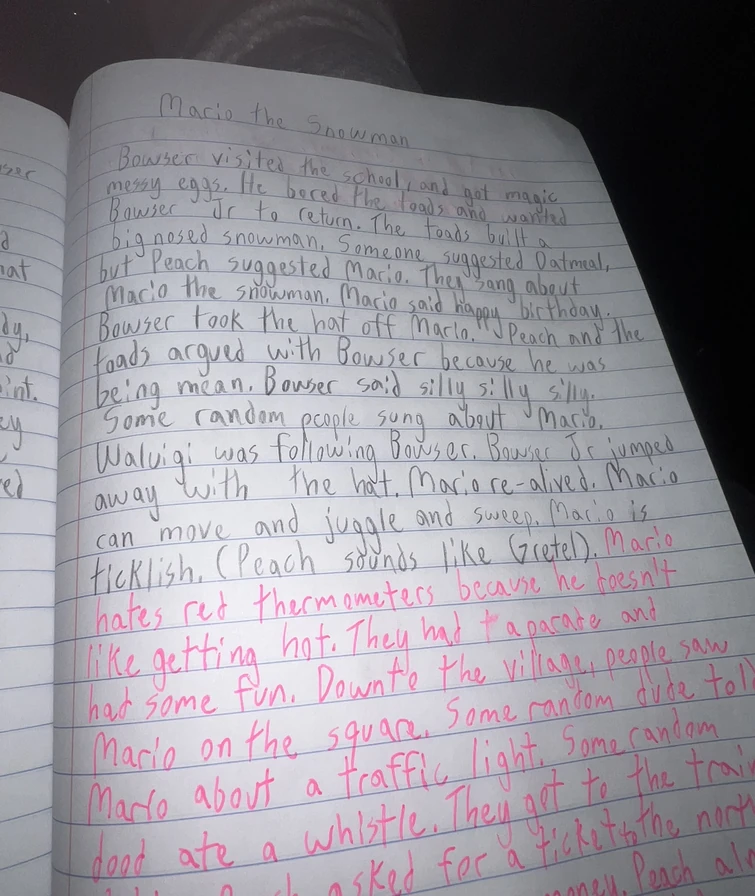 Mario the Snowman
Bowser visited the school, and got magic
messy eggs. He bored the toads and wanted
Bowser Jr to return. The toads built a
big nosed snowman. Someone suggested Oatmeal,
but Peach suggested Mario. They sang about
Mario the snowman. Mario said happy birthday.
Bowser took the hat off Mario. Peach and the
toads argued with Bowser because he was
being mean. Bowser said silly silly silly.
Some random people sung about Mario.
Waluigi was following Bowser. Bowser Jr jumped
away with the hat. Mario re-alived. Mario
can move and juggle and sweep. Mario is
ticklish. (Peach sounds like Gretel). Mario
hates red thermometers because he doesn't
like getting hot. They had a parade and
had some fun. Down to the village, people saw
Mario on the square. Some random dude told
Mario about a traffic light. Some random
dood ate a whistle. They got to the train
asked for a ticket to the north
money Peach